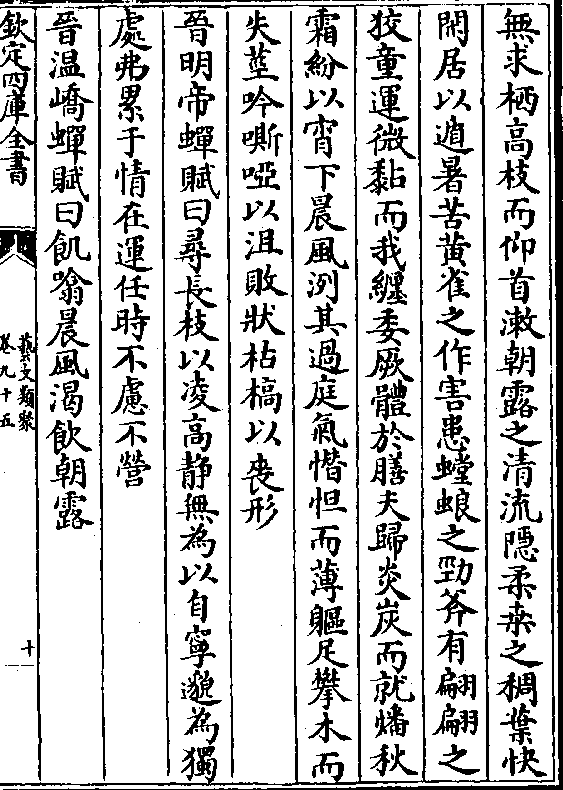 無求栖高枝而仰首漱朝露之清流隠柔桒之稠葉快
閒居以遁暑苦黄雀之作害患螳蜋之勁斧有翩翩之
狡童運微黏而我纒委厥體於膳夫歸炎炭而就燔秋
霜紛以宵下晨風冽其過庭氣憯怛而薄軀足攀木而
失莖吟嘶啞以沮敗狀枯槁以䘮形
晉明帝蟬賦曰尋長枝以凌高静無為以自寧邈為獨
處弗累于情在運任時不慮不營
晉温嶠蟬賦曰飢噏晨風渴飲朝露
欽定四庫全書
藝文類聚
卷九十五
十